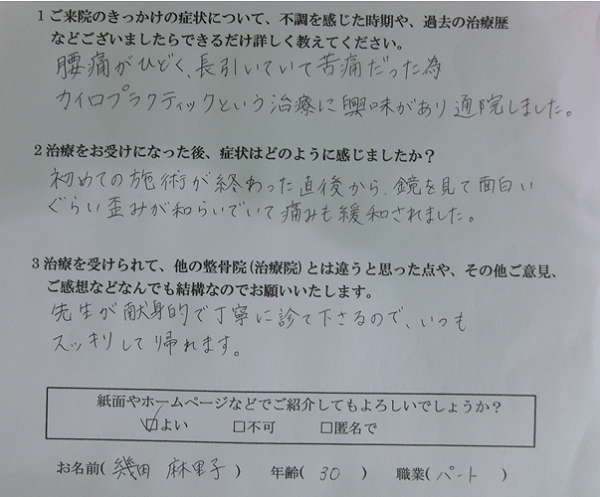 1 ご来院のきっかけの症状について、不調を感じた時期や、過去の治療歴
などございましたらできるだけ詳しく教えてください。
腰痛がひどく、長引いていて苦痛だった為
カイロプラクティックという治療に興味があり通院しました。
2 治療をお受けになった後、症状はどのように感じましたか？
初めての施術が終わった直後から、鏡を見て面白い
ぐらい歪みが和らいでいて痛みも緩和されました。
3 治療を受けられて、他の整骨院(治療院)とは違うと思った点や、その他ご意見、
ご感想などなんでも結構なのでお願いいたします。
先生が献身的で丁寧に診て下さるので、いつも
スッキリして帰れます。
紙面やホームページなどでご紹介してもよろしいでしょうか？
☑よい □不可 □匿名で
お名前( 幾田 麻里子 ) 年齢( 30 ) 職業( パート )